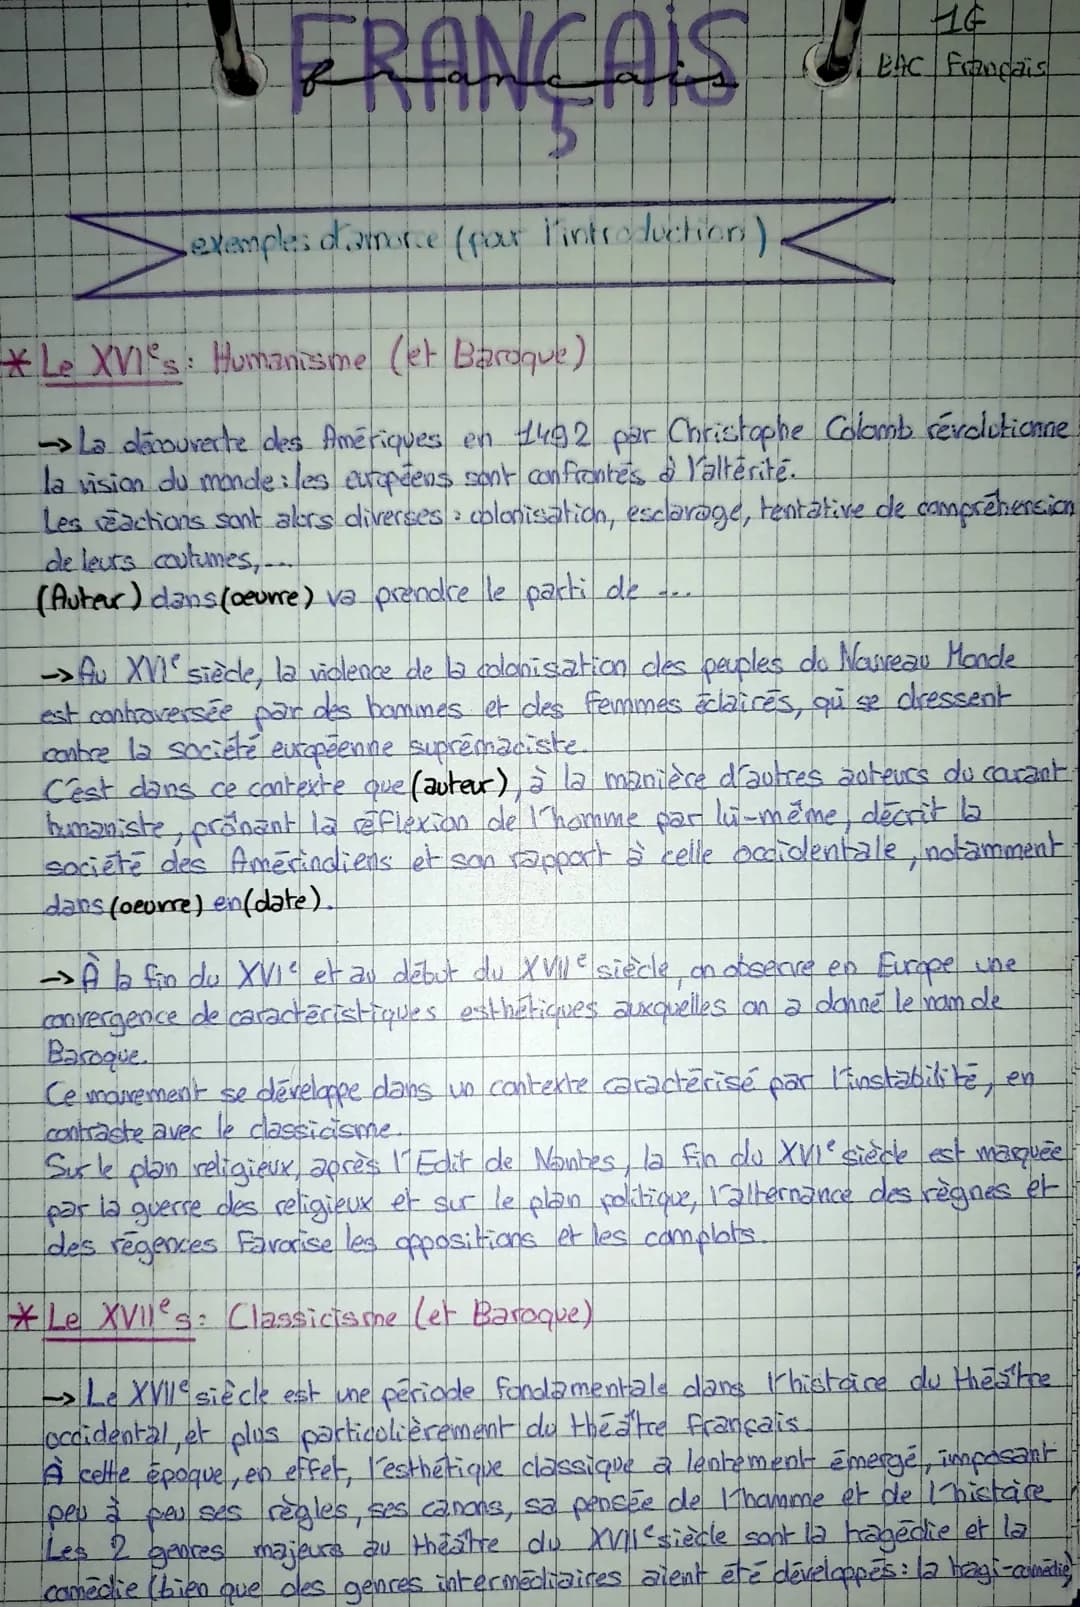 1G
FRANÇAIS
français
BAC Français
exemples d'amorce (pour l'introduction)
* Le XVIe s: Humanisme (et Baroque)
→ La découverte des Amériques en 1492 par Christophe Colomb révolutionne
la vision du monde : les européens sont confrontés à l'altérité.
Les réactions sont alors diverses : colonisation, esclavage, tentative de compréhension
de leurs coutumes,...
(Auteur) dans (oeuvre) va prendre le parti de ...
→ Au XVIe siècle, la violence de la colonisation des peuples du Nouveau Monde
est controversée par des hommes et des femmes éclairés, qui se dressent
contre la société européenne suprémaciste.
C'est dans ce contexte que (auteur), à la manière d'autres auteurs du courant
humaniste, prônant la réflexion de l'homme par lui-même, décrit la
société des Amérindiens et son rapport à celle occidentale, notamment
dans (oeuvre) en (date).
→ À la fin du XVIe et au début du XVIIe siècle, on observe en Europe une
convergence de caractéristiques esthétiques auxquelles on a donné le nom de
Baroque.
Ce mouvement se développe dans un contexte caractérisé par l'instabilité, en
contraste avec le classicisme.
Sur le plan religieux, après l'Edit de Nantes, la fin du XVIe siècle est marquée
par la guerre des religieux et sur le plan politique, l'alternance des règnes et
des régences favorise les oppositions et les complots.
* Le XVIIe s: Classicisme (et Baroque)
→ Le XVIIe siècle est une période fondamentale dans l'histoire du théâtre
occidental, et plus particulièrement du théâtre français.
À cette époque, en effet, l'esthétique classique a lentement émergé, imposant
peu à peu ses règles, ses canons, sa pensée de l'homme et de l'histoire
Les 2 genres majeurs au théâtre du XVIIe siècle sont la tragédie et la
comédie (bien que des genres intermédiaires aient été développés : la tragi-comédie)